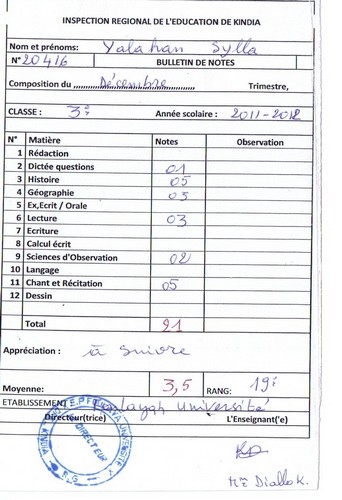 INSPECTION REGIONAL DE L'EDUCATION DE KINDIA
Nom et prénoms: Yalahan Sylla
N° 20416 BULLETIN DE NOTES
Composition du Décembre Trimestre,
CLASSE : 3è Année scolaire : 2011-2012
N° Matière Notes Observation
1 Rédaction
2 Dictée questions 01
3 Histoire 05
4 Géographie 05
5 Ex,Ecrit / Orale
6 Lecture 03
7 Ecriture
8 Calcul écrit
9 Sciences d'Observation 02
10 Langage
11 Chant et Récitation 05
12 Dessin
Total 21
Appréciation : à suivre
Moyenne: 3,5 RANG: 19è
ETABLISSEMENT Université
Directeur(trice) L'Enseignant('e)
DIRECTEUR
KINDIA
Mr Diallo K.